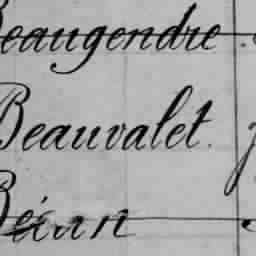 Beaugendre
Beauvalet.
Béan